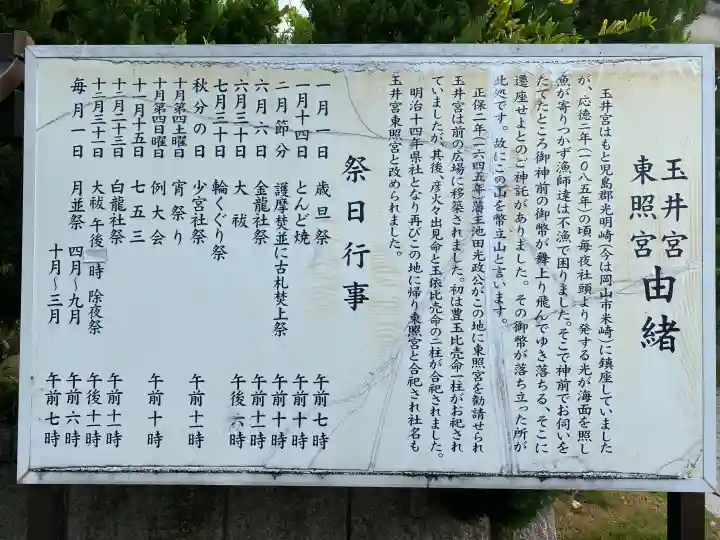 玉井宮
東照宮
由緒
玉井宮はもと児島郡光明崎(今は岡山市米崎)に鎮座していました
が、応徳二年(一〇八五年)の頃毎夜社頭より発する光が海面を照し
魚が寄りつかず漁師達は不漁で困りました。そこで神前でお伺いを
たてたところ御神前の御幣が舞上り飛んでゆき落ちる、そこに
遷座せよとのご神託がありました。その御幣が落ち立った所が
此処です。故にこの山を幣立山と言います。
正保二年(一六四五年)藩主池田光政公がこの地に東照宮を勧請せられ
玉井宮は前の広場に移築されました。初は豊玉比売命一柱がお祀され
ていましたが、其後、彦火々出見命と玉依比売命の二柱が合祀されました。
明治十四年県社となり再びこの地に帰り東照宮と合祀され社名も
玉井宮東照宮と改められました。
祭日行事
一月一日 歳旦祭 午前七時
一月十四日 とんど焼 午前七時
二月節分 護摩焚並に古札焚上祭 午前十時
六月六日 金龍社祭 午前十一時
六月三十日 大祓 午後六時
七月三十日 輪くぐり祭
秋分の日 少宮社祭 午前十一時
十月第四土曜日 宵祭り
十月第四日曜日 例大会 午前十時
十一月十五日 七五三
十二月二十三日 白龍社祭 午前十一時
十二月三十一日 大祓 午後 時 除夜祭 午後十一時
毎月一日 月並祭 四月~九月 午前六時
十月~三月 午前七時